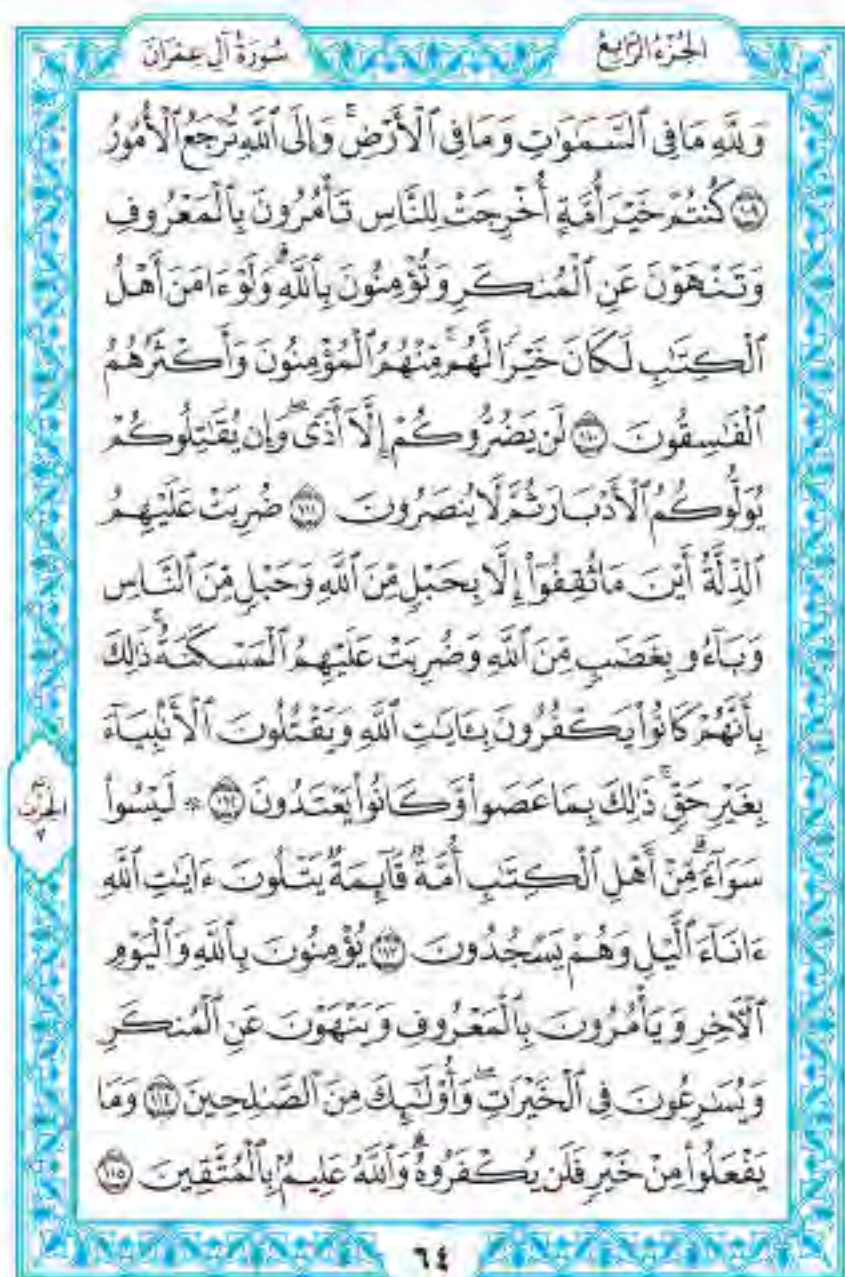 سُورَةُ آلِ عِمْرَانَ
الجُزْءُ الرَّابِعُ
وَلِلَّهِ مَا فِي ٱلسَّمَٰوَٰتِ وَمَا فِي ٱلْأَرْضِۚ وَإِلَى ٱللَّهِ تُرْجَعُ ٱلْأُمُورُ
١٠٩ كُنتُمْ خَيْرَ أُمَّةٍ أُخْرِجَتْ لِلنَّاسِ تَأْمُرُونَ بِٱلْمَعْرُوفِ
وَتَنْهَوْنَ عَنِ ٱلْمُنكَرِ وَتُؤْمِنُونَ بِٱللَّهِۗ وَلَوْ ءَامَنَ أَهْلُ
ٱلْكِتَٰبِ لَكَانَ خَيْرًا لَّهُمۚ مِّنْهُمُ ٱلْمُؤْمِنُونَ وَأَكْثَرُهُمُ
ٱلْفَٰسِقُونَ ١١٠ لَن يَضُرُّوكُمْ إِلَّآ أَذًىۖ وَإِن يُقَٰتِلُوكُمْ
يُوَلُّوكُمُ ٱلْأَدْبَارَ ثُمَّ لَا يُنصَرُونَ ١١١ ضُرِبَتْ عَلَيْهِمُ
ٱلذِّلَّةُ أَيْنَ مَا ثُقِفُوٓا۟ إِلَّا بِحَبْلٍ مِّنَ ٱللَّهِ وَحَبْلٍ مِّنَ ٱلنَّاسِ
وَبَآءُو بِغَضَبٍ مِّنَ ٱللَّهِ وَضُرِبَتْ عَلَيْهِمُ ٱلْمَسْكَنَةُۚ ذَٰلِكَ
بِأَنَّهُمْ كَانُوا۟ يَكْفُرُونَ بِـَٔايَٰتِ ٱللَّهِ وَيَقْتُلُونَ ٱلْأَنۢبِيَآءَ
بِغَيْرِ حَقٍّۚ ذَٰلِكَ بِمَا عَصَوا۟ وَّكَانُوا۟ يَعْتَدُونَ ١١٢ ۞ لَيْسُوا۟
سَوَآءًۗ مِّنْ أَهْلِ ٱلْكِتَٰبِ أُمَّةٌ قَآئِمَةٌ يَتْلُونَ ءَايَٰتِ ٱللَّهِ
ءَانَآءَ ٱلَّيْلِ وَهُمْ يَسْجُدُونَ ١١٣ يُؤْمِنُونَ بِٱللَّهِ وَٱلْيَوْمِ
ٱلْءَاخِرِ وَيَأْمُرُونَ بِٱلْمَعْرُوفِ وَيَنْهَوْنَ عَنِ ٱلْمُنكَرِ
وَيُسَٰرِعُونَ فِي ٱلْخَيْرَٰتِۖ وَأُو۟لَٰٓئِكَ مِنَ ٱلصَّٰلِحِينَ ١١٤ وَمَا
يَفْعَلُوا۟ مِنْ خَيْرٍ فَلَن يُكْفَرُوهُۗ وَٱللَّهُ عَلِيمٌۢ بِٱلْمُتَّقِينَ ١١٥
الحزب
٧
٦٤